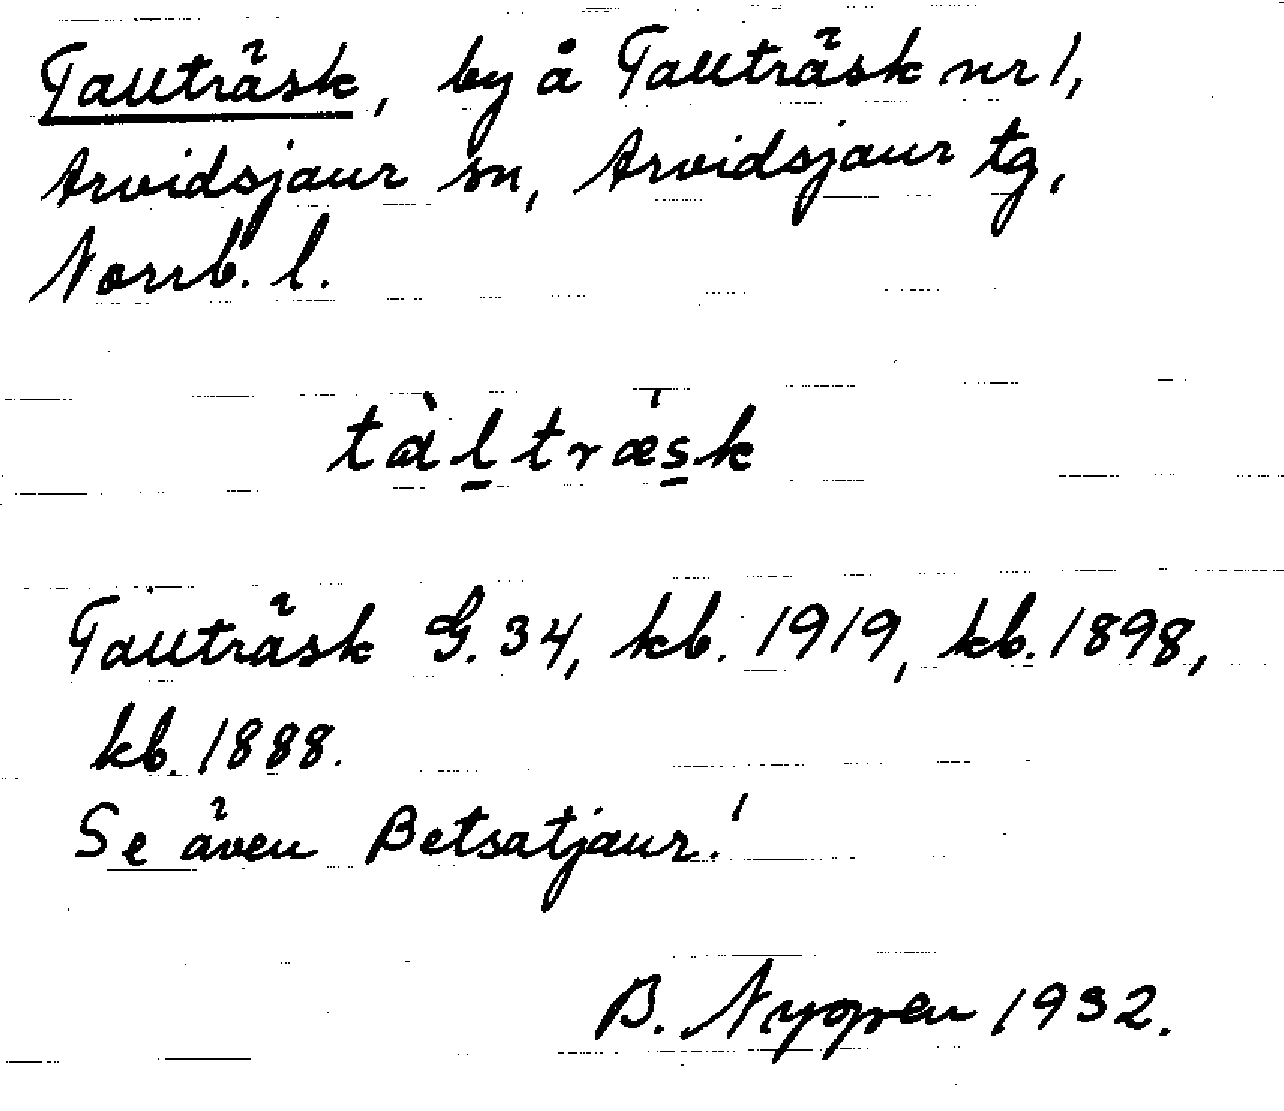 Tallträsk, by å Tallträsk nr 1,
Arvidsjaur sn, Arvidsjaur tg,
Norrb. l.
tàl̲træ̍s̲k
Tallträsk G. 34, kb. 1919, kb. 1898,
kb. 1888.
Se även Betsatjaur!
B. Nygren 1932.